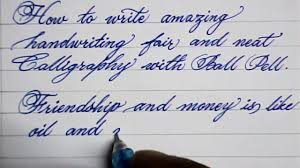 How to write amazing
handwriting fair and neat
Calligraphy with Ball Pell.
Friendship and money is like
oil and